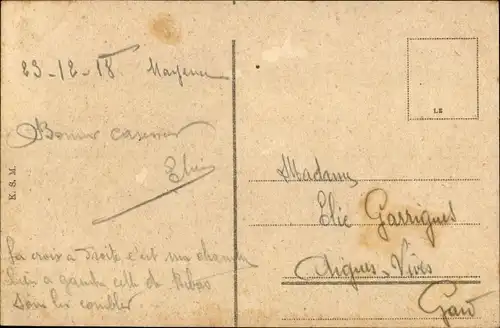 23-12-18 Mayence
Bonnes caresses
Elie
La croix à droite c'est ma chambre
celle de Ribas
dans les combles
K. S. M.
LE
Madame
Elie Garrigues
Aigues-Vives
Gard